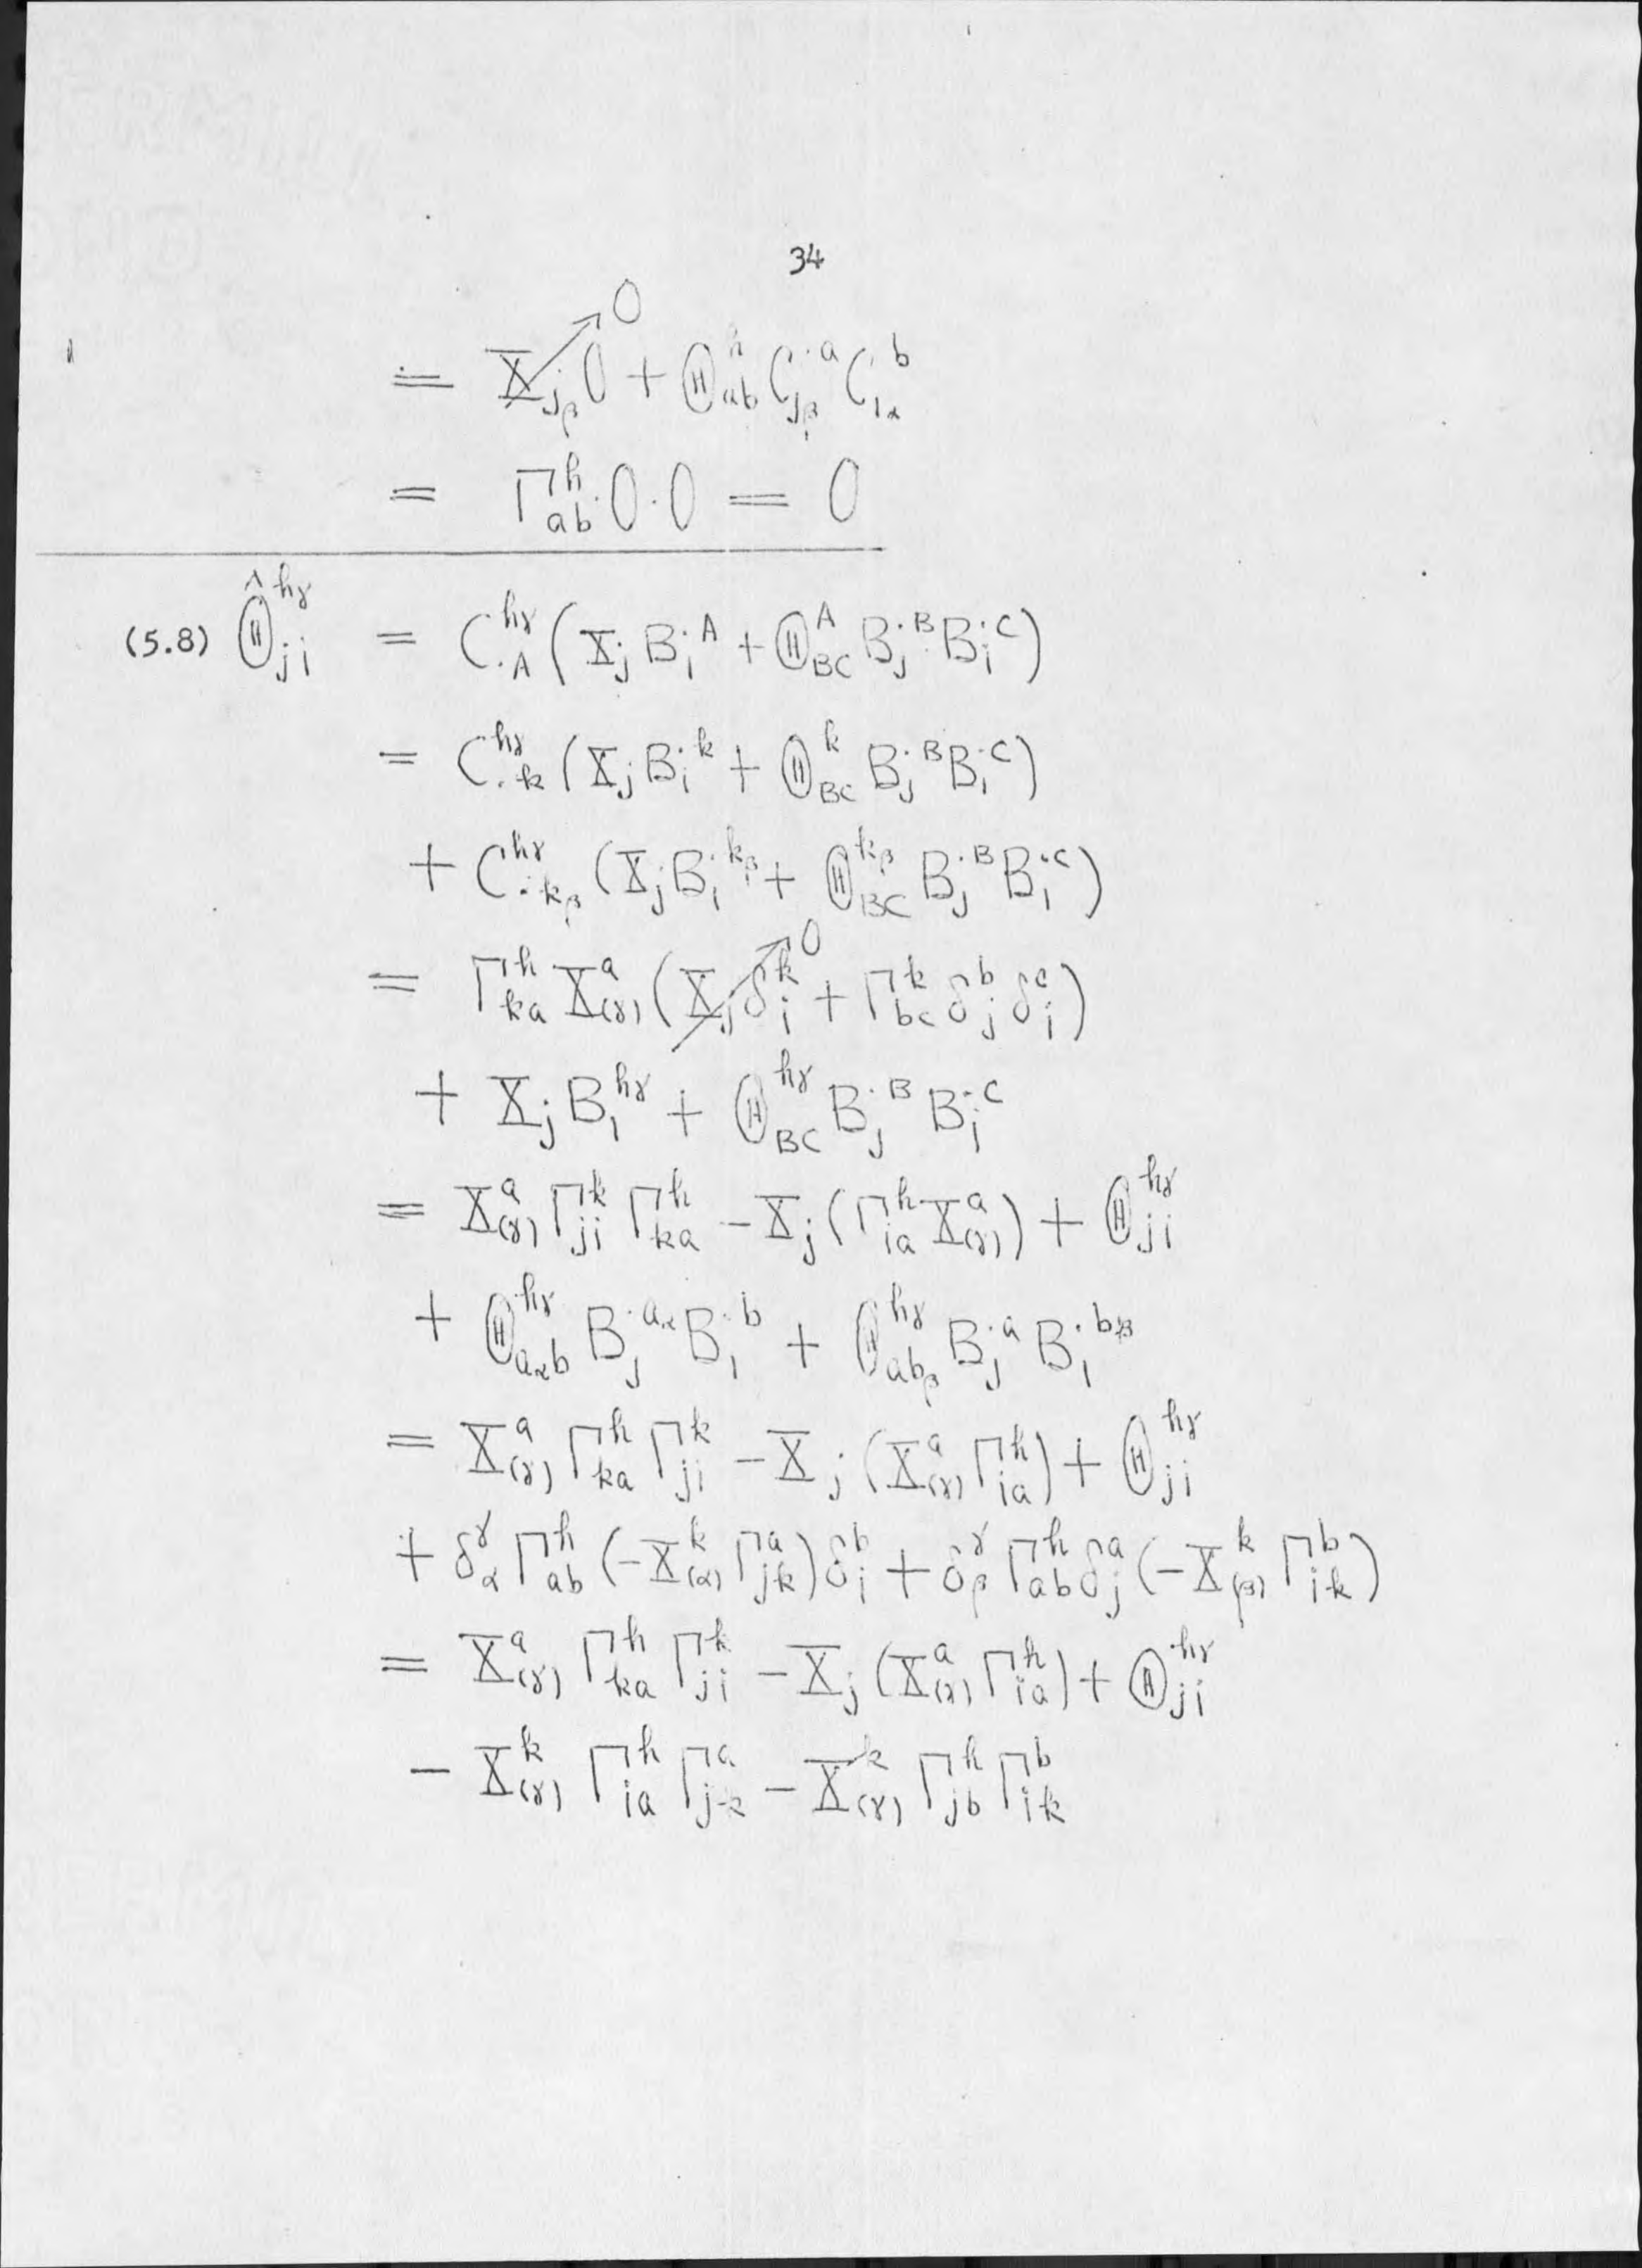 34
= X_{j_β} 0 → 0 + Θ^h_{ab} C_{j_β}^{·a} C_{i_α}^{·b}
= Γ^h_{ab}·0·0 = 0
(5.8) Θ̂^{h_γ}_{ji} = C^{h_γ}_{·A} (X_j B_i^{·A} + Θ^A_{BC} B_j^{·B} B_i^{·C})
= C^{h_γ}_{·k} (X_j B_i^{·k} + Θ^k_{BC} B_j^{·B} B_i^{·C})
+ C^{h_γ}_{·k_β} (X_j B_i^{·k_β} + Θ^{k_β}_{BC} B_j^{·B} B_i^{·C})
= Γ^h_{ka} X^a_{(γ)} (X_j δ^k_i → 0 + Γ^k_{bc} δ^b_j δ^c_i)
+ X_j B_i^{h_γ} + Θ^{h_γ}_{BC} B_j^{·B} B_i^{·C}
= X^a_{(γ)} Γ^k_{ji} Γ^h_{ka} - X_j (Γ^h_{ia} X^a_{(γ)}) + Θ^{h_γ}_{ji}
+ Θ^{h_γ}_{a_α b} B_j^{·a_α} B_i^{·b} + Θ^{h_γ}_{ab_β} B_j^{·a} B_i^{·b_β}
= X^a_{(γ)} Γ^h_{ka} Γ^k_{ji} - X_j (X^a_{(γ)} Γ^h_{ia}) + Θ^{h_γ}_{ji}
+ δ^γ_α Γ^h_{ab} (-X^k_{(α)} Γ^a_{jk}) δ^b_i + δ^γ_β Γ^h_{ab} δ^a_j (-X^k_{(β)} Γ^b_{ik})
= X^a_{(γ)} Γ^h_{ka} Γ^k_{ji} - X_j (X^a_{(γ)} Γ^h_{ia}) + Θ^{h_γ}_{ji}
- X^k_{(γ)} Γ^h_{ia} Γ^a_{jk} - X^k_{(γ)} Γ^h_{jb} Γ^b_{ik}